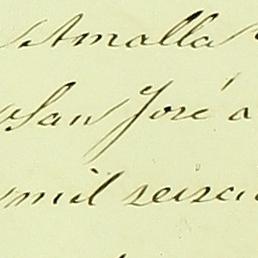 Amalla
San José a
mil seisci